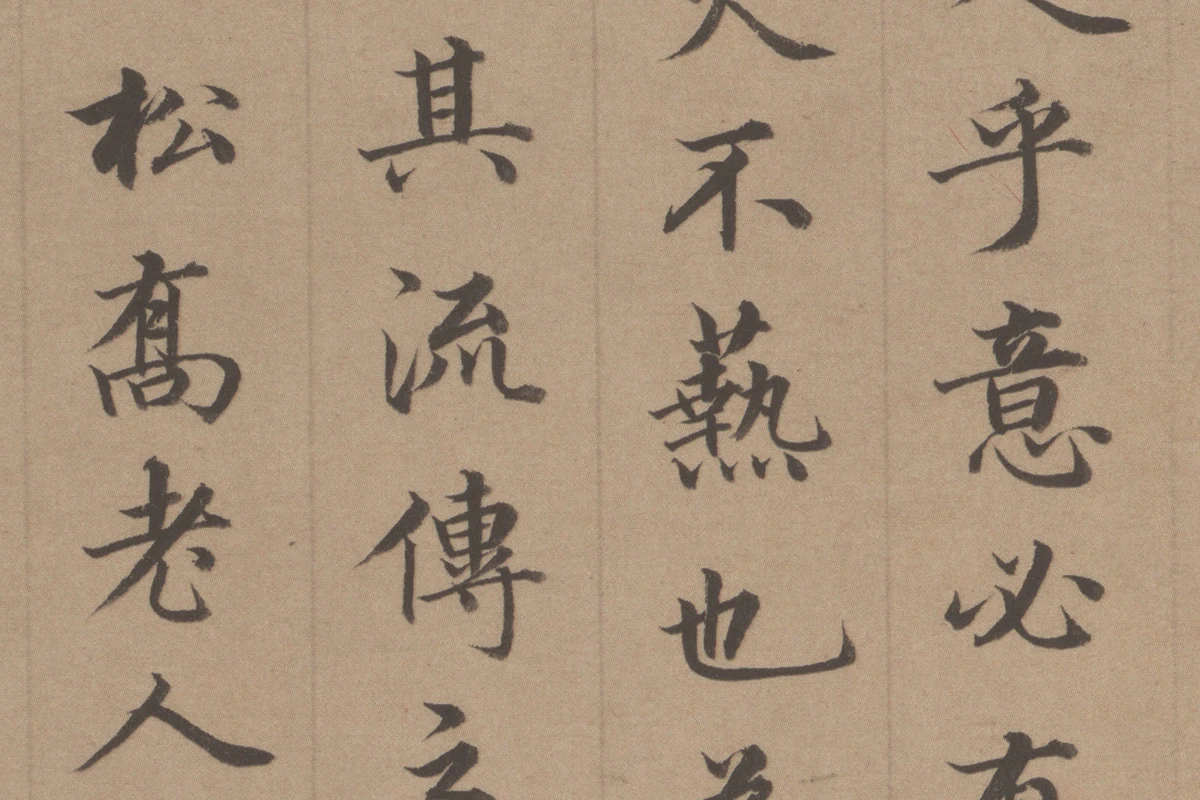 乎意必有
不爇也
其流傳
松喬老人